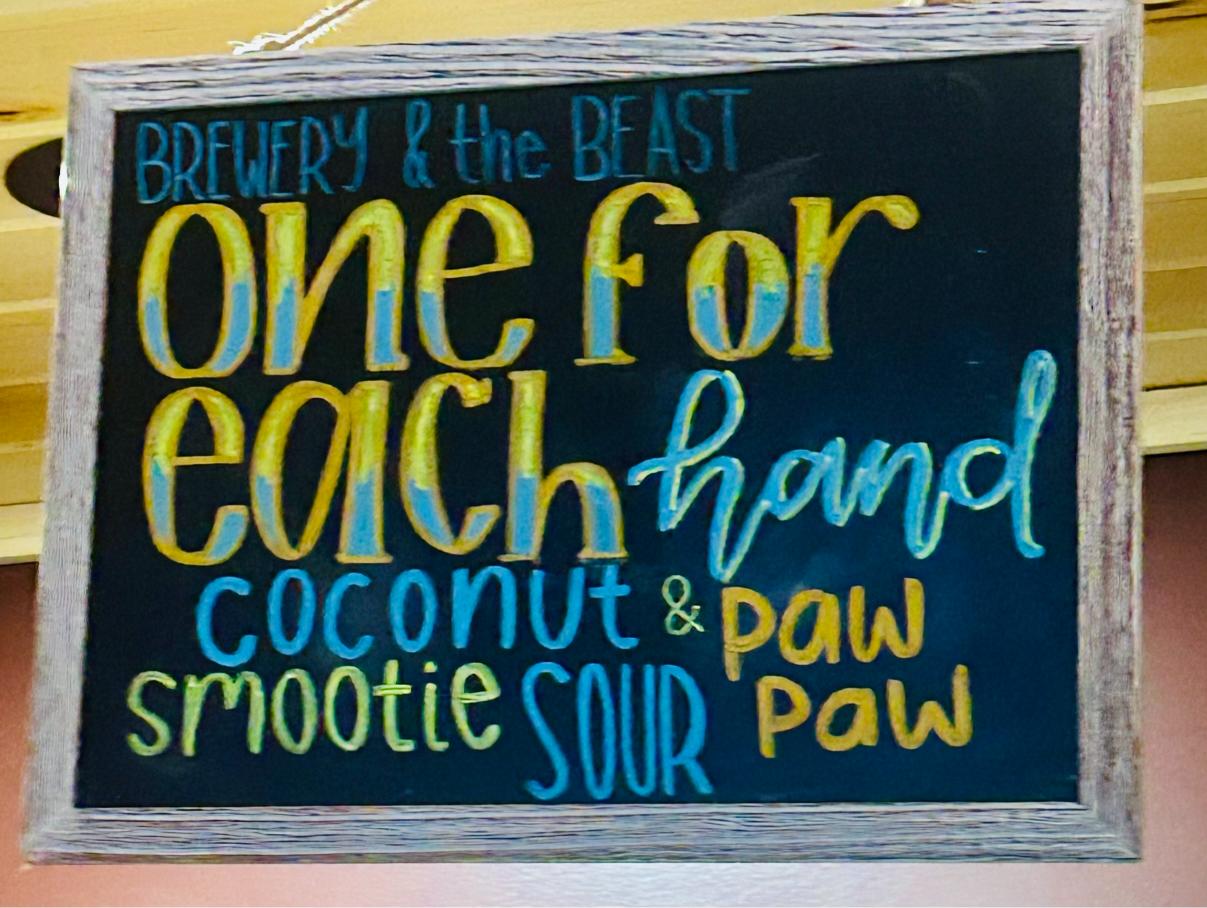 BREWERY & the BEAST
one for
each hand
coconut & paw
smootie SOUR paw